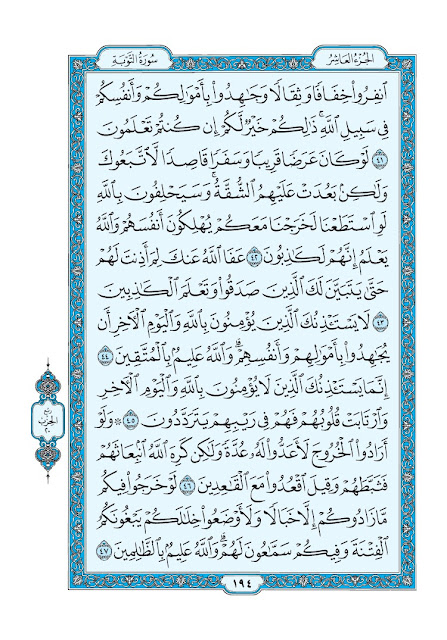 الجزء العاشر
سورة التوبة
ٱنفِرُوا۟ خِفَافًا وَثِقَالًا وَجَٰهِدُوا۟ بِأَمْوَٰلِكُمْ وَأَنفُسِكُمْ
فِى سَبِيلِ ٱللَّهِ ۚ ذَٰلِكُمْ خَيْرٌ لَّكُمْ إِن كُنتُمْ تَعْلَمُونَ
٤١ لَوْ كَانَ عَرَضًا قَرِيبًا وَسَفَرًا قَاصِدًا لَّٱتَّبَعُوكَ
وَلَٰكِنۢ بَعُدَتْ عَلَيْهِمُ ٱلشُّقَّةُ ۚ وَسَيَحْلِفُونَ بِٱللَّهِ
لَوِ ٱسْتَطَعْنَا لَخَرَجْنَا مَعَكُمْ يُهْلِكُونَ أَنفُسَهُمْ وَٱللَّهُ
يَعْلَمُ إِنَّهُمْ لَكَٰذِبُونَ ٤٢ عَفَا ٱللَّهُ عَنكَ لِمَ أَذِنتَ لَهُمْ
حَتَّىٰ يَتَبَيَّنَ لَكَ ٱلَّذِينَ صَدَقُوا۟ وَتَعْلَمَ ٱلْكَٰذِبِينَ
٤٣ لَا يَسْتَـْٔذِنُكَ ٱلَّذِينَ يُؤْمِنُونَ بِٱللَّهِ وَٱلْيَوْمِ ٱلْءَاخِرِ أَن
يُجَٰهِدُوا۟ بِأَمْوَٰلِهِمْ وَأَنفُسِهِمْ ۗ وَٱللَّهُ عَلِيمٌۢ بِٱلْمُتَّقِينَ ٤٤
إِنَّمَا يَسْتَـْٔذِنُكَ ٱلَّذِينَ لَا يُؤْمِنُونَ بِٱللَّهِ وَٱلْيَوْمِ ٱلْءَاخِرِ
وَٱرْتَابَتْ قُلُوبُهُمْ فَهُمْ فِى رَيْبِهِمْ يَتَرَدَّدُونَ ٤٥ ۞ وَلَوْ
أَرَادُوا۟ ٱلْخُرُوجَ لَأَعَدُّوا۟ لَهُۥ عُدَّةً وَلَٰكِن كَرِهَ ٱللَّهُ ٱنۢبِعَاثَهُمْ
فَثَبَّطَهُمْ وَقِيلَ ٱقْعُدُوا۟ مَعَ ٱلْقَٰعِدِينَ ٤٦ لَوْ خَرَجُوا۟ فِيكُم
مَّا زَادُوكُمْ إِلَّا خَبَالًا وَلَأَوْضَعُوا۟ خِلَٰلَكُمْ يَبْغُونَكُمُ
ٱلْفِتْنَةَ وَفِيكُمْ سَمَّٰعُونَ لَهُمْ ۗ وَٱللَّهُ عَلِيمٌۢ بِٱلظَّٰلِمِينَ ٤٧
ربع
الحزب
٢٠
١٩٤